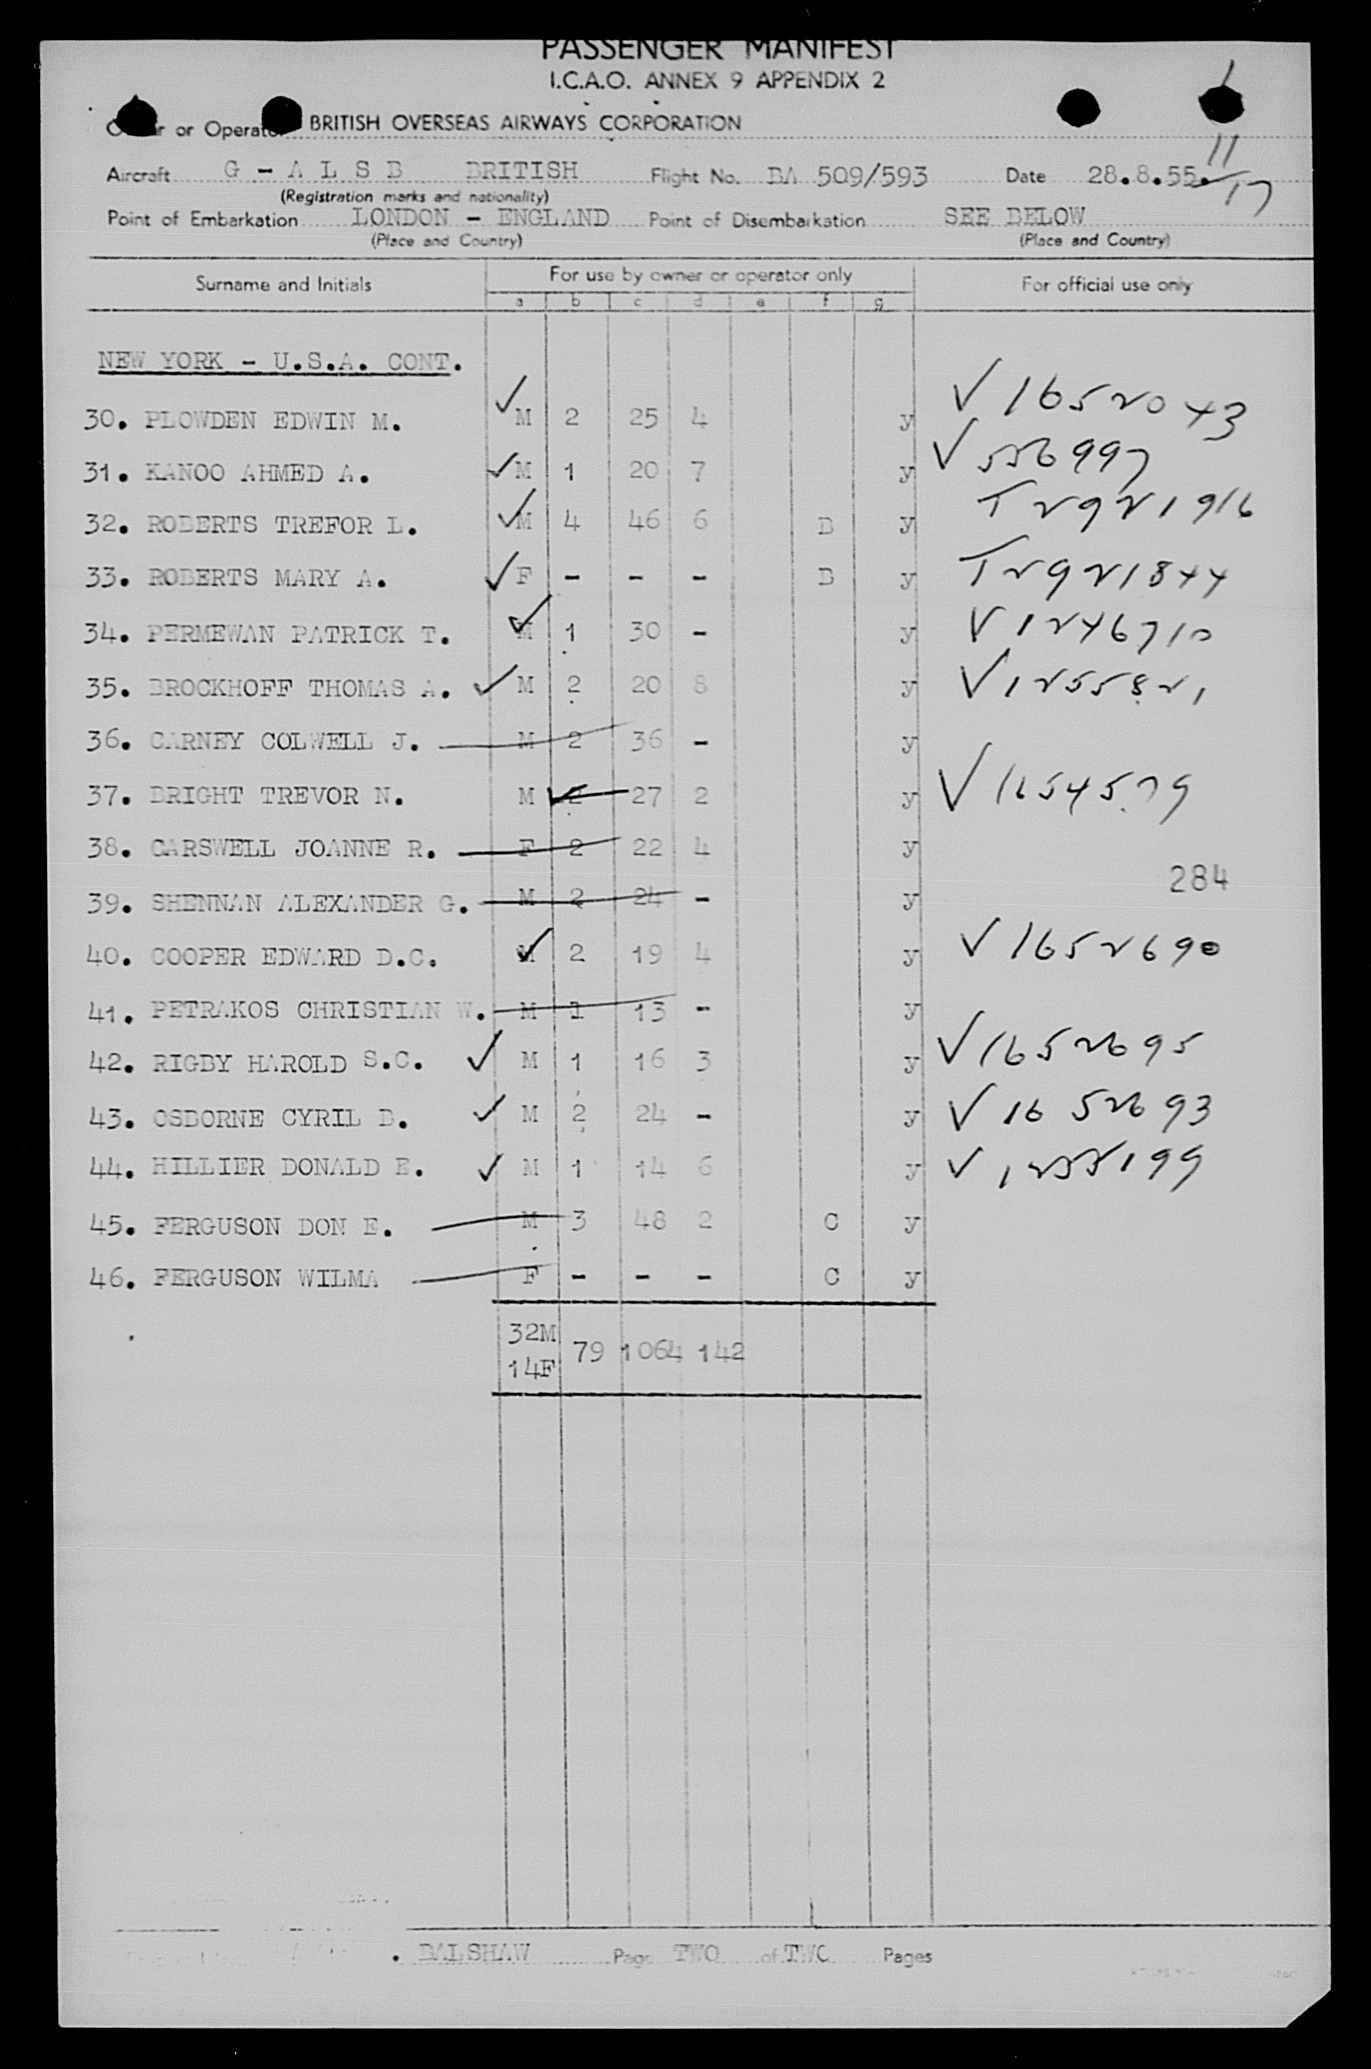 PASSENGER MANIFEST
I.C.A.O. ANNEX 9 APPENDIX 2
or Operator BRITISH OVERSEAS AIRWAYS CORPORATION
Aircraft G - A L S B BRITISH Flight No. BA 509/593 Date 28.8.55.
(Registration marks and nationality)
Point of Embarkation LONDON - ENGLAND Point of Disembarkation SEE BELOW
(Place and Country) (Place and Country)
Surname and Initials For use by owner or operator only For official use only
a b c d e f g
NEW YORK - U.S.A. CONT.
30. PLOWDEN EDWIN M. M 2 25 4 y V 1652043
31. KANOO AHMED A. M 1 20 7 y V 556997
32. ROBERTS TREFOR L. M 4 46 6 B y T2921916
33. ROBERTS MARY A. F - - - B y T2921844
34. PERMEWAN PATRICK T. M 1 30 - y V 1246710
35. BROCKHOFF THOMAS A. M 2 20 8 y V 1255821
36. CARNEY COLWELL J. M 2 36 - y
37. BRIGHT TREVOR N. M 2 27 2 y V 1654579
38. CARSWELL JOANNE R. F 2 22 4 y
284
39. SHENNAN ALEXANDER G. M 2 24 - y
40. COOPER EDWARD D.C. M 2 19 4 y V 1652690
41. PETRAKOS CHRISTIAN W. M 1 13 - y
42. RIGBY HAROLD S.C. M 1 16 3 y V 1652695
43. OSBORNE CYRIL B. M 2 24 - y V 1652693
44. HILLIER DONALD E. M 1 14 6 y V 1255199
45. FERGUSON DON E. M 3 48 2 C y
46. FERGUSON WILMA F - - - C y
32M
79 1064 142
14F
. BALSHAW Page TWO of TWO Pages